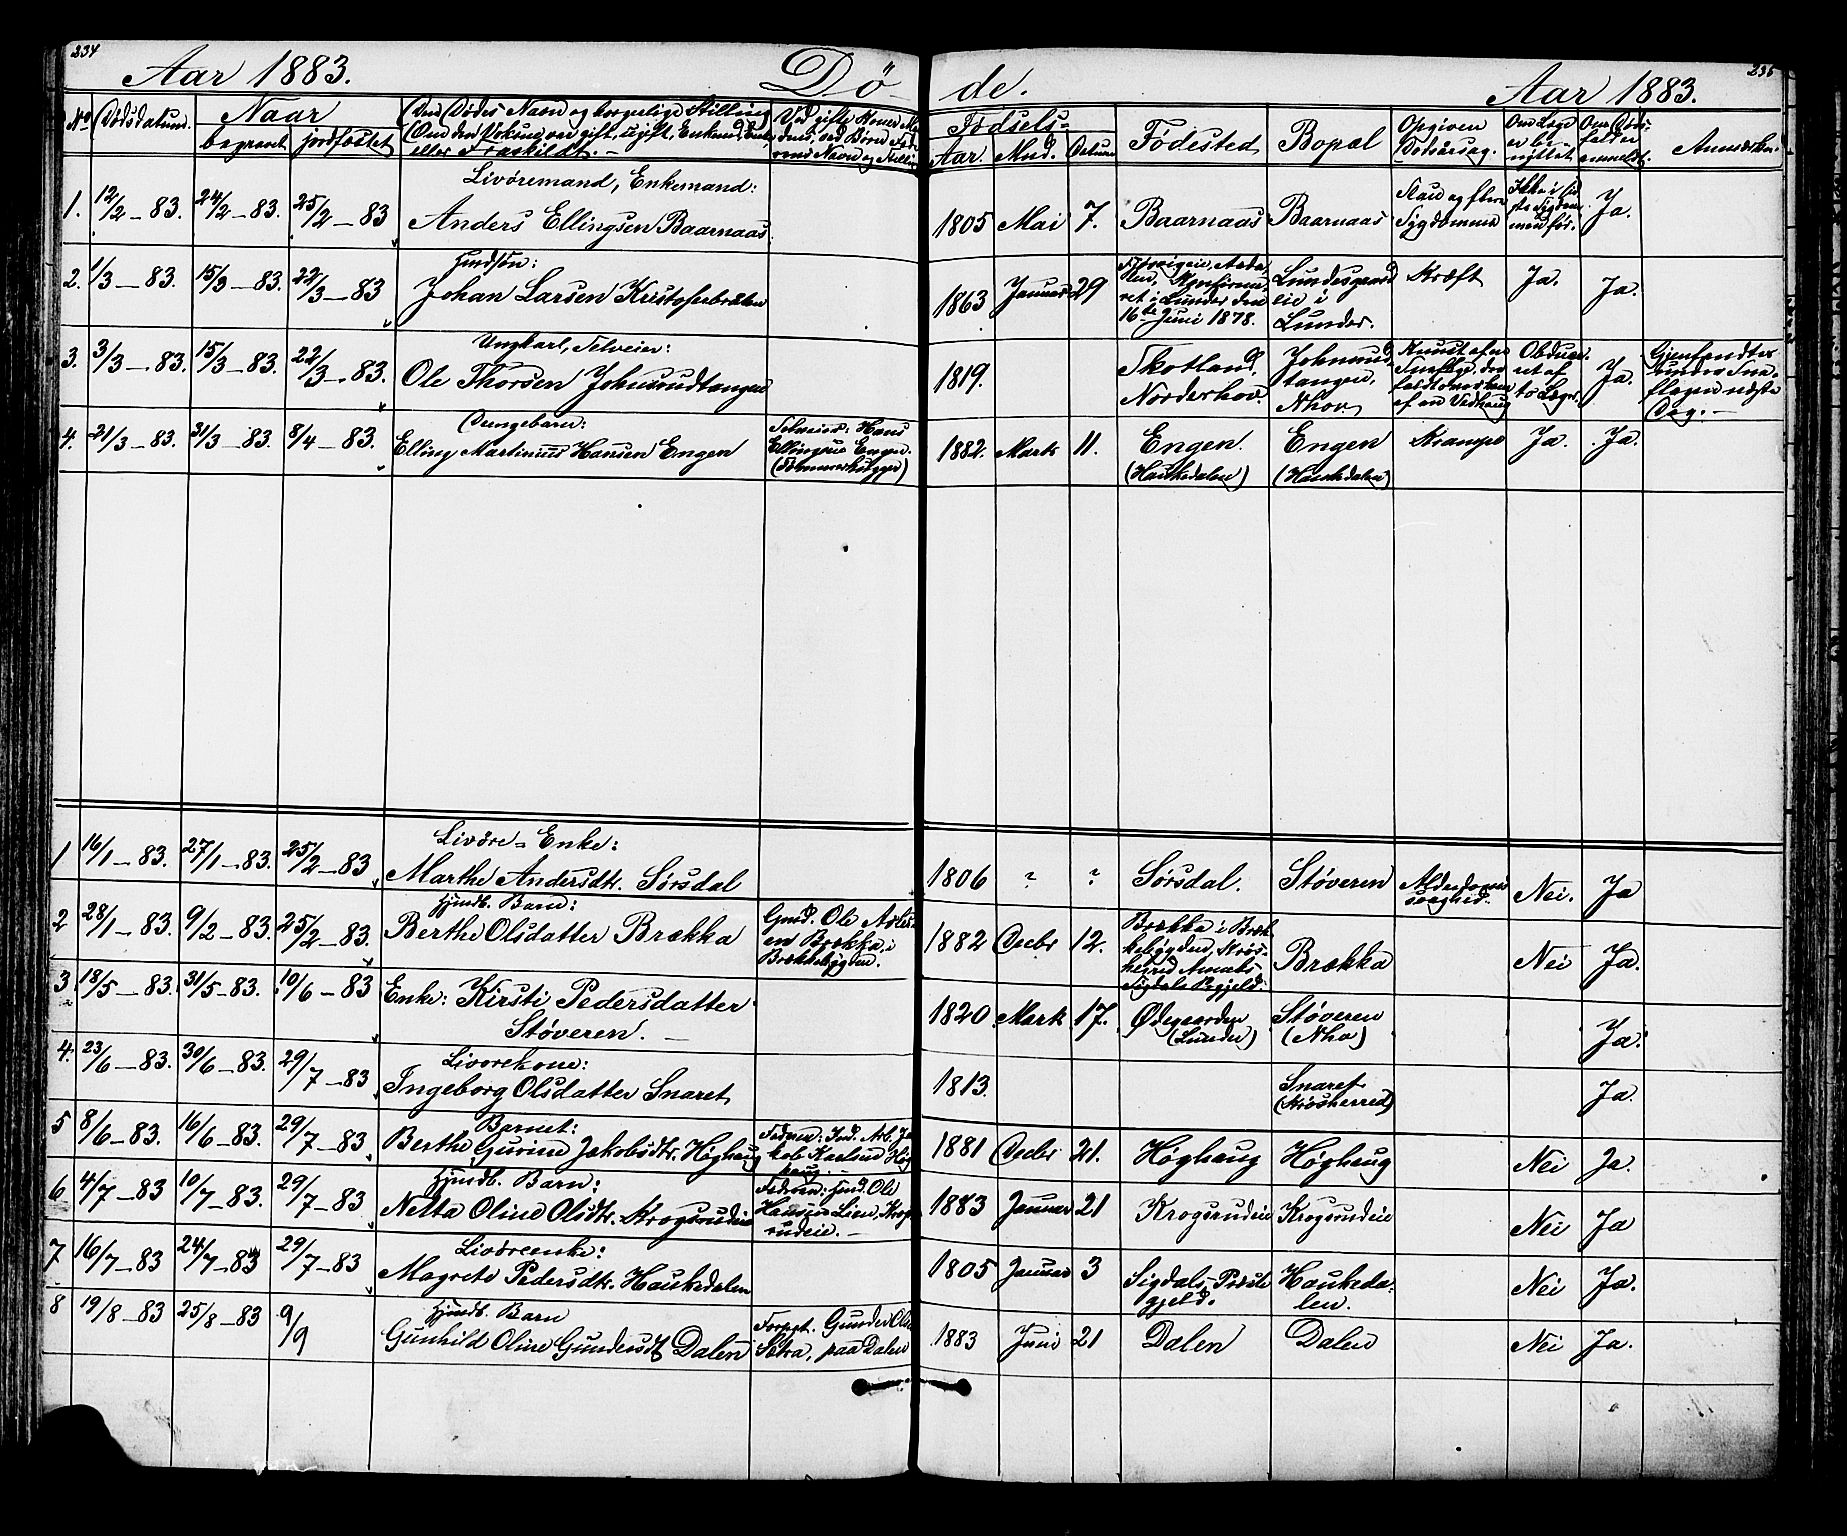 234
Aar 1883.
Dö-
de.
Aar 1883.
No Dødsdatum.
Naar
begravet jordfæstet
Den Dødes Navn og borgerlige Stilling
(Om den Voksne var gift, ugift, Enkemand, Enke,
eller Fraskildt. —
Ved gifte Koner
Navn og
Fødsels-
Aar. Mnd. Datum
Fødested
Bopæl
Opgiven
Dødsårsag.
Om Læge
er be-
nyttet
Om Døds-
fald er
anmeldt.
1. 12/2 - 83. 24/2 - 83. 25/2 - 83
Livøremand, Enkemand:
Anders Ellingsen Baarnaas
1805 Mai 7. Baarnaas Baarnaas
og flere
Sygdomme
Ikke i
Ja.
2. 1/3 - 83. 15/3 - 83. 22/3 - 83
Johan Larsen Kristofersbråten
1863 Januar 29
ret i Lunder den
16de Juni 1878.
Lundesgaard
eie i
Lunder.
Kræft Ja. Ja.
3. 3/3 - 83. 15/3 - 83. 22/3 - 83.
Ungkarl, Selveier:
Ole Thorsen Johnsrudtangen
1819.
Skotland,
Norderhov.
Johnsrud
tangen,
Nhov
Knust af en
af en Vedhaug
Obduce-
ret af
to Læger.
Ja.
Gjenfandtes
under Sne-
flagen næste
Dag. —
4. 21/3 - 83. 31/3 - 83. 8/4 - 83.
Drengebarn:
Elling Martinius Hansen Engen
Selveier: Hans
Ellingsen Engen.
(Tømmerhugger)
1882. Marts 11. Engen. Engen Krampe Ja. Ja.
(Haukedalen) (Haukedalen)
1 16/1 - 83. 27/1 - 83. 25/2 - 83
Livøre-Enke:
Marthe Andersdtr. Sørsdal
1806 ? ? Sørsdal. Støveren Alderdoms
svaghed. Nei. Ja
2 28/1 - 83. 9/2 - 83. 25/2 - 83.
Hjmdb. Barn:
Berthe Olsdatter Brækka
Gmd. Ole
en Brækka i
Brækkebygden.
1882 Decbr 12.
Brækka i Bræk
kebygden, Krøs-
herred Annæks-
Sigdals Prgjeld.
Brækka Nei Ja.
3 18/5 - 83. 31/5 - 83. 10/6 - 83
Enke: Kirsti Pedersdatter
Støveren. —
1820 Marts 17. Ødegaarden Støveren
(Lunder) (Nho) Ja.
4. 23/6 - 83. 30/6 - 83. 29/7 - 83
Livørekone:
Ingeborg Olsdatter Snaret
1813. Snaret
(Krøsherred) Ja.
5 8/6 - 83. 16/6 - 83. 29/7 - 83
Barnet:
Berthe Gurine Jakobsdtr. Høghaug
Faderen: Ind. Arb. Ja
kob Karlsen Høg
haug. —
1881 Decbr 21. Høghaug Høghaug Nei Ja.
6 4/7 - 83 10/7 - 83. 29/7 - 83.
Hjmdb. Barn:
Netta Oline Olsdtr. Krogsrudeie
Faderen: Ole
Hansen Lien, Krogs
rudeie. —
1883 Januar 21 Krogsrudeie Krogsrudeie Nei Ja
7 16/7 - 83 24/7 - 83 29/7 - 83
Livøreenke:
Magrete Pedersdtr. Haukedalen
1805 Januar 3 Sigdals-Præste
gjeld. Haukeda-
len. Nei Ja.
8 19/8 - 83 25/8 - 83 9/9
Hjmdb. Barn
Gunhild Oline Gundersdtr Dalen
Forpgt. Gunder Olsen
Sætra, paa Dalen
1883 Juni 21 Dalen Dalen Nei Ja.